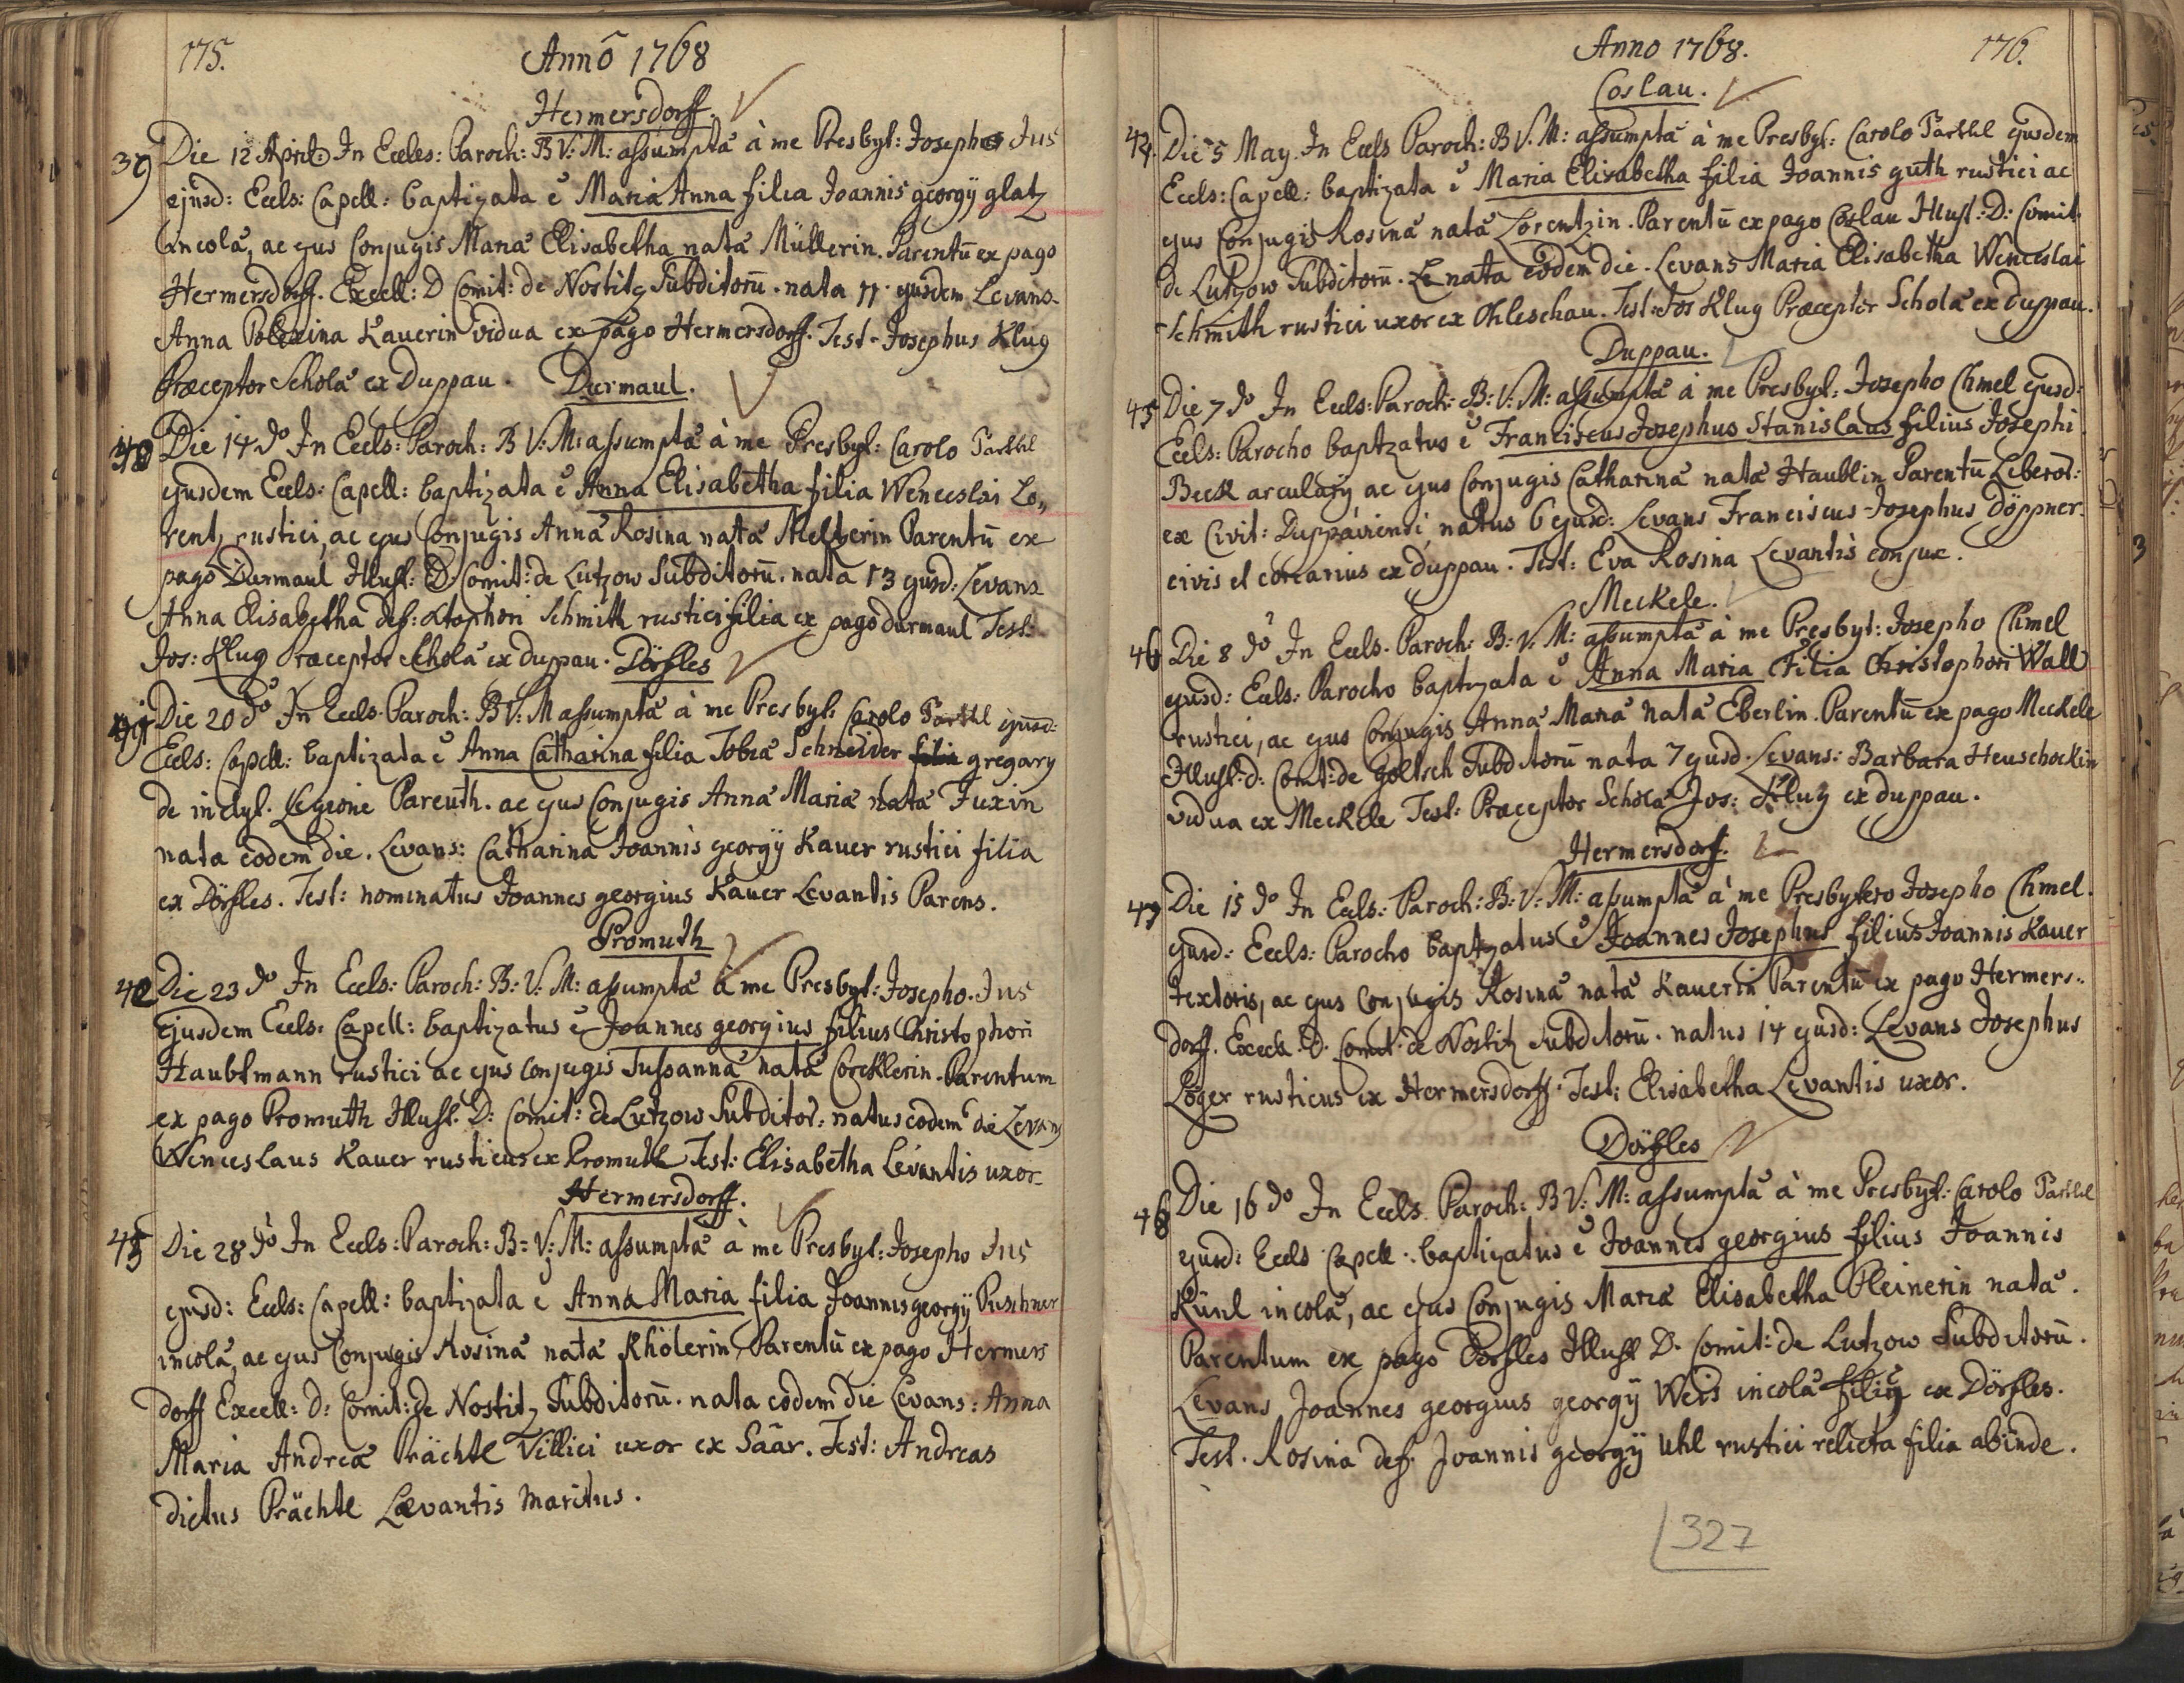 175.
Annô 1768
Hermersdorff.
39 Die 12 April: In Eccles: Paroch: B V: M: assumptæ à me Presbyt: Josepho Jus
ejusd: Eccls: Capell: baptizata ē Maria Anna filia Joannis georgÿ glatz
incolæ, ac ejus Conjugis Mariæ Elisabetha nata Müllerin. Parentū ex pago
Hermersdorff. Excell: D Comit: de Nostitz Subditorū. nata 11. ejusdem Levans
Anna Polexina Kauerin vidua ex pago Hermersdorff. Test. Josephus Klug
Præceptor Scholæ ex Duppau.
Durmaul.
40 Die 14 do In Eccls: Paroch: B V: M: assumptæ à me Presbyt: Carolo Parthl
ejusdem Eccls: Capell: baptizata ē Anna Elisabetha filia Wenceslai Lo„
rentz rustici, ac ejus Conjugis Anna Rosina nata Meltzerin Parentū ex
pago Durmaul Illust: D. Comit: de Lutzow Subditorū. nata 13 ejusd: Levans
Anna Elisabetha def: Xtophori Schmith rustici filia ex pago durmaul Test:
Jos: Klug Præceptor Scholæ ex duppau.
Dörfles
41 Die 20 do In Eccls. Paroch: B V: M assumptæ à me Presbyt: Carolo Parthl ejusd:
Eccls: Capell: baptizata ē Anna Catharina filia Tobiæ Schneider gregarÿ
de inclyt. Legione Pareuth. ac ejus Conjugis Anna Maria nata Fuxin
nata eodem die. Levans: Catharina Joannis georgÿ Kauer rustici filia
ex Dörfles. Test: nominatus Joannes georgius Kauer Levantis Parens.
Promuth
42 Die 23 do In Eccls: Paroch: B: V: M: assumptæ à me Presbyt: Josepho Jus
Ejusdem Eccls: Capell: baptizatus ē Joannes georgius filius Christophori
Haubtmann rustici ac ejus conjugis Sussanna nata Corcklerin. Parentum
ex pago Promuth Illust: D: Comit: de Lutzow Subditor: natus eodem die Levans
Wenceslaus Kauer rusticus ex Promuth Test: Elisabetha Levantis uxor
Hermersdorff.
43 Die 28 do In Eccls: Paroch: B: V: M: assumptæ à me Presbyt: Josepho Jus
ejusd: Eccls: Capell: baptizata ē Anna Maria filia Joannis georgÿ Puschner
incolæ, ac ejus Conjugis Rosina nata Khölerin, Parentū ex pago Hermers
dorff Excell: D: Comit: de Nostitz Subditorū. nata eodem die Levans: Anna
Maria Andreæ Prächtl Villici uxor ex Säär. Test: Andreas
dictus Prächtl Lævantis maritus.
Anno 1768. 176.
Coslau.
44. Die 5 May. In Eccls Paroch: B V. M: assumptæ à me Presbyt: Carolo Parthl ejusdem
Eccls: Capell: baptizata ē Maria Elisabetha filia Joannis guth rustici ac
ejus Conjugis Rosina nata Lorentzin. Parentū ex pago Coslau Illust: D: Comit
de Lutzow Subditorū. nata eodem die. Levans Maria Elisabetha Wenceslai
Schmith rustici uxor ex Ohleschau. Test: Jos Klug Præceptor Scholæ ex duppau.
Duppau.
45 Die 7 do In Eccls: Paroch: B: V: M: assumptæ à me Presbyt: Josepho Chmel ejusd:
Eccls: Parocho baptzatus ē Franciscus Josephus Stanislaus filius Josephi
Beck arcularÿ ac ejus Conjugis Catharina nata Haublin Parentū Liberor:
ex Civit: Duppaviensi, natus 6 ejusd: Levans Franciscus Josephus Döppner
civis et coriarius ex duppau. Test: Eva Rosina Levantis conjux.
Meckele.
46 Die 8 do In Eccls. Paroch: B: V: M: assumptæ à me Presbyt: Josepho Chmel
ejusd: Eccls: Parocho baptizata ē Anna Maria Filia Christophori Wall
rustici, ac ejus Conjugis Anna Maria Nata Eberlin. Parentū ex pago Meckele
Illust: d: Comit: de Goltsch Subditorū nata 7 ejusd. Levans: Barbara Heuschockin
vidua ex Meckele Test: Præceptor Scholæ Jos: Klug ex duppau.
Hermersdorf.
47 Die 15 do In Eccls: Paroch: B: V: M: assumptæ à me Presbytero Josepho Chmel.
ejusd: Eccls: Parocho baptzatus ē Joannes Josephus filius Joannis Kauer
textoris, ac ejus Conjugis Rosina nata Kauerin Parentū ex pago Hermers„
dorff. Excell. D. Comit: de Nostitz Subditorū. natus 14 ejusd: Levans Josephus
Löger rusticus ex Hermersdorff. Test: Elisabetha Levantis uxor.
Dörfles
48 Die 16 do In Eccls Paroch: B V: M: assumptæ à me Presbyt: Carolo Parthl
ejusd: Eccls Capell: baptizatus ē Joannes georgius filius Joannis
Künl incolæ, ac ejus Conjugis Maria Elisabetha Pleinerin nata.
Parentum ex pago Dörfles Illust D. Comit: de Lutzow Subditorū.
Levans Joannes georgius georgÿ Weis incolæ filiÿ ex Dörfles.
Test. Rosina def. Joannis georgÿ Uhl rustici relicta filia abinde.
327